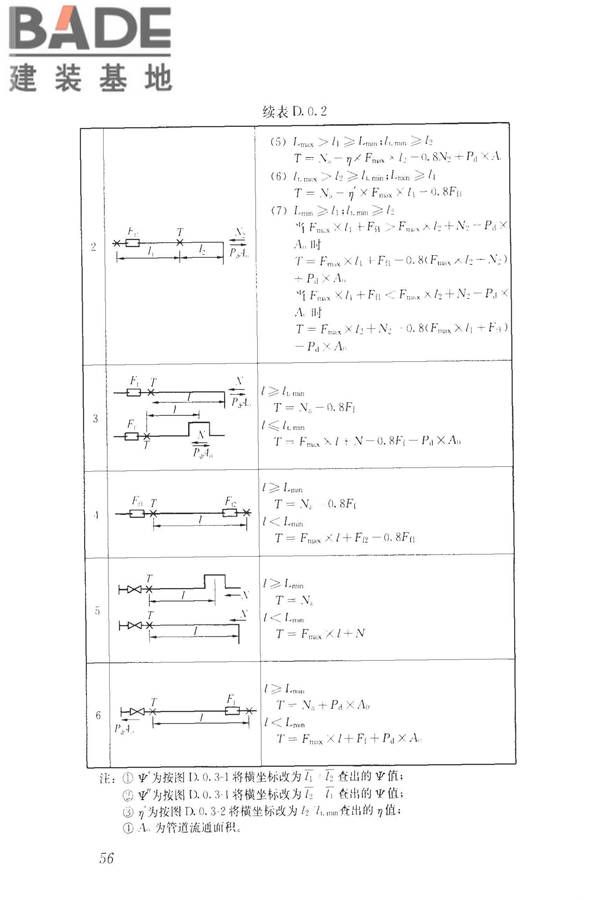 BADE
建装基地
续表D.0.2
2
F_{f1} T N_2
l_1 l_2 P_dA_0
(5) L_{max}>l_1≥L_{min};l_{t.min}≥l_2
T=N_a-η×F_{max}×l_1-0.8N_2+P_d×A_0
(6) l_{t.max}>l_2≥l_{t.min};L_{min}≥l_1
T=N_a-η′×F_{max}×l_1-0.8F_{f1}
(7) L_{min}≥l_1;l_{t.min}≥l_2
当F_{max}×l_1+F_{f1}>F_{max}×l_2+N_2-P_d×
A_0时
T=F_{max}×l_1+F_{f1}-0.8(F_{max}×l_2+N_2)
+P_d×A_0
当F_{max}×l_1+F_{f1}<F_{max}×l_2+N_2-P_d×
A_0时
T=F_{max}×l_2+N_2-0.8(F_{max}×l_1+F_{f1})
-P_d×A_0
3
F_f T N
l P_dA_0
l
F_f N
T P_dA_0
l≥l_{t.min}
T=N_a-0.8F_f
l≤l_{t.min}
T=F_{max}×l+N-0.8F_f-P_d×A_0
4
F_{f1} T F_{f2}
l
l≥L_{min}
T=N_a-0.8F_{f1}
l<L_{min}
T=F_{max}×l+F_{f2}-0.8F_{f1}
5
T
l N
T N
l
l≥L_{min}
T=N_a
l<L_{min}
T=F_{max}×l+N
6
T F_f
P_dA_0 l
l≥L_{min}
T=N_a+P_d×A_0
l<L_{min}
T=F_{max}×l+F_f+P_d×A_0
注:① Ψ′为按图D.0.3-1将横坐标改为l_1 l_2查出的Ψ值;
② Ψ″为按图D.0.3-1将横坐标改为l_2 l_1查出的Ψ值;
③ η′为按图D.0.3-2将横坐标改为l_2/l_{t.min}查出的η值;
④ A_0为管道流通面积。
56